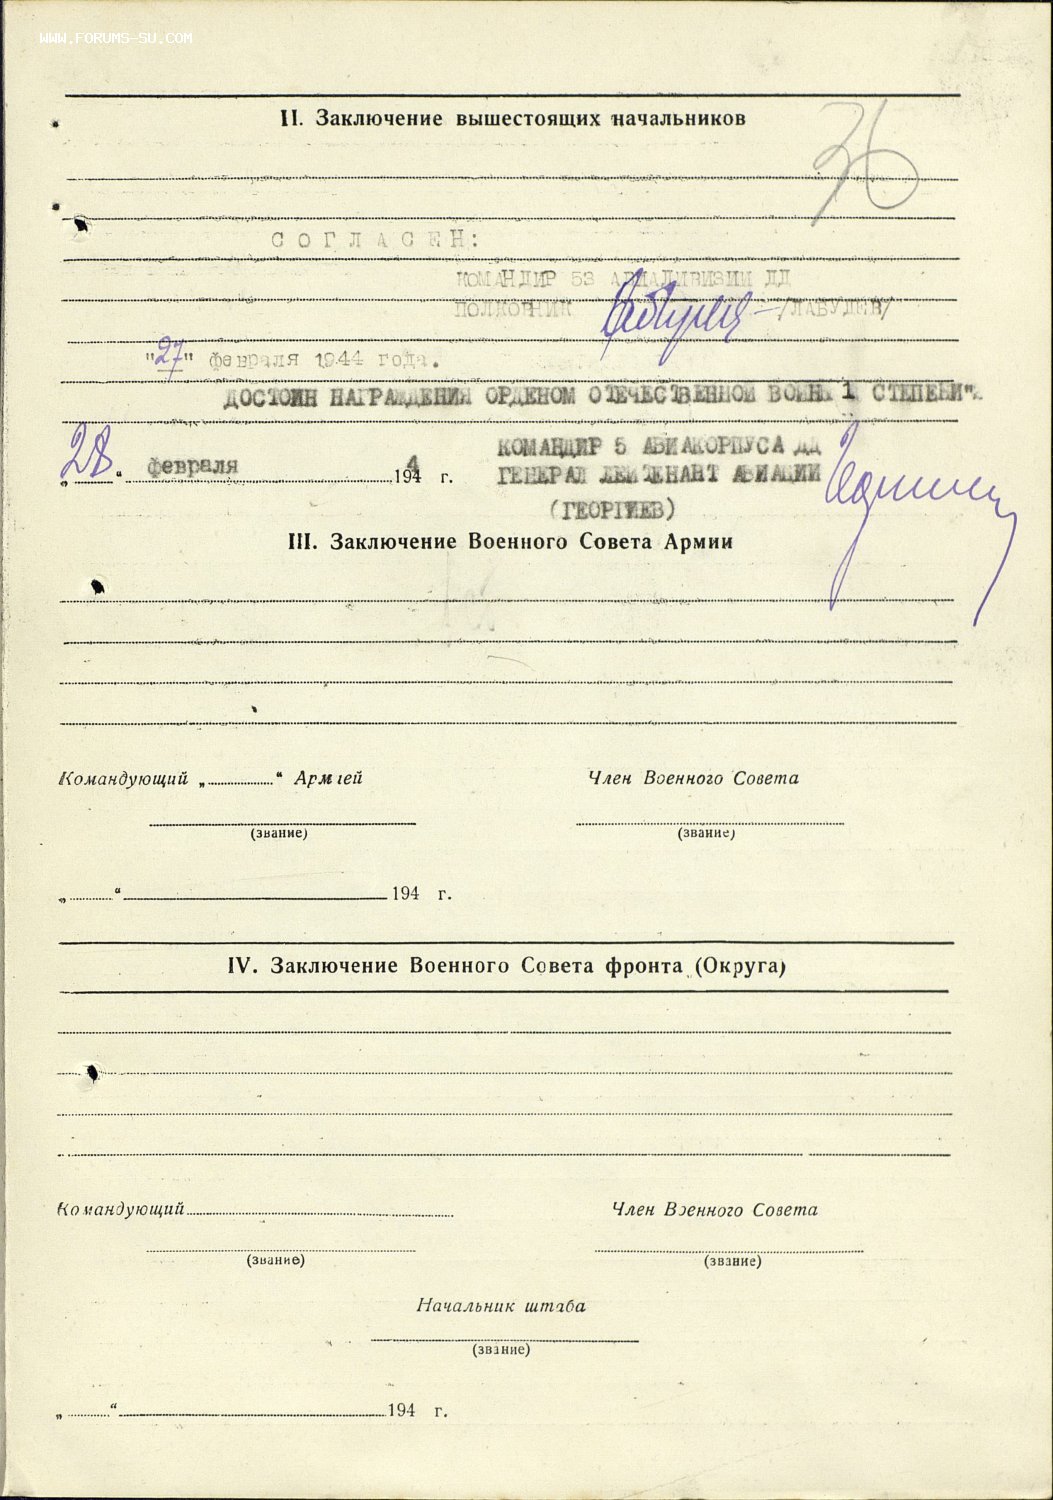 WWW.FORUMS-SU.COM
36
II. Заключение вышестоящих начальников
СОГЛАСЕН:
КОМАНДИР 53 АВИАДИВИЗИИ ДД
ПОЛКОВНИК /ЛАБУДЕВ/
"27" февраля 1944 года.
ДОСТОИН НАГРАЖДЕНИЯ ОРДЕНОМ ОТЕЧЕСТВЕННОЙ ВОЙНЫ 1 СТЕПЕНИ"
КОМАНДИР 5 АВИАКОРПУСА ДД
„28“ февраля 1944 г. ГЕНЕРАЛ ЛЕЙТЕНАНТ АВИАЦИИ
(ГЕОРГИЕВ)
III. Заключение Военного Совета Армии
Командующий „..........“ Армией Член Военного Совета
(звание) (звание)
„..........“ 194 г.
IV. Заключение Военного Совета фронта (Округа)
Командующий Член Военного Совета
(звание) (звание)
Начальник штаба
(звание)
„..........“ 194 г.